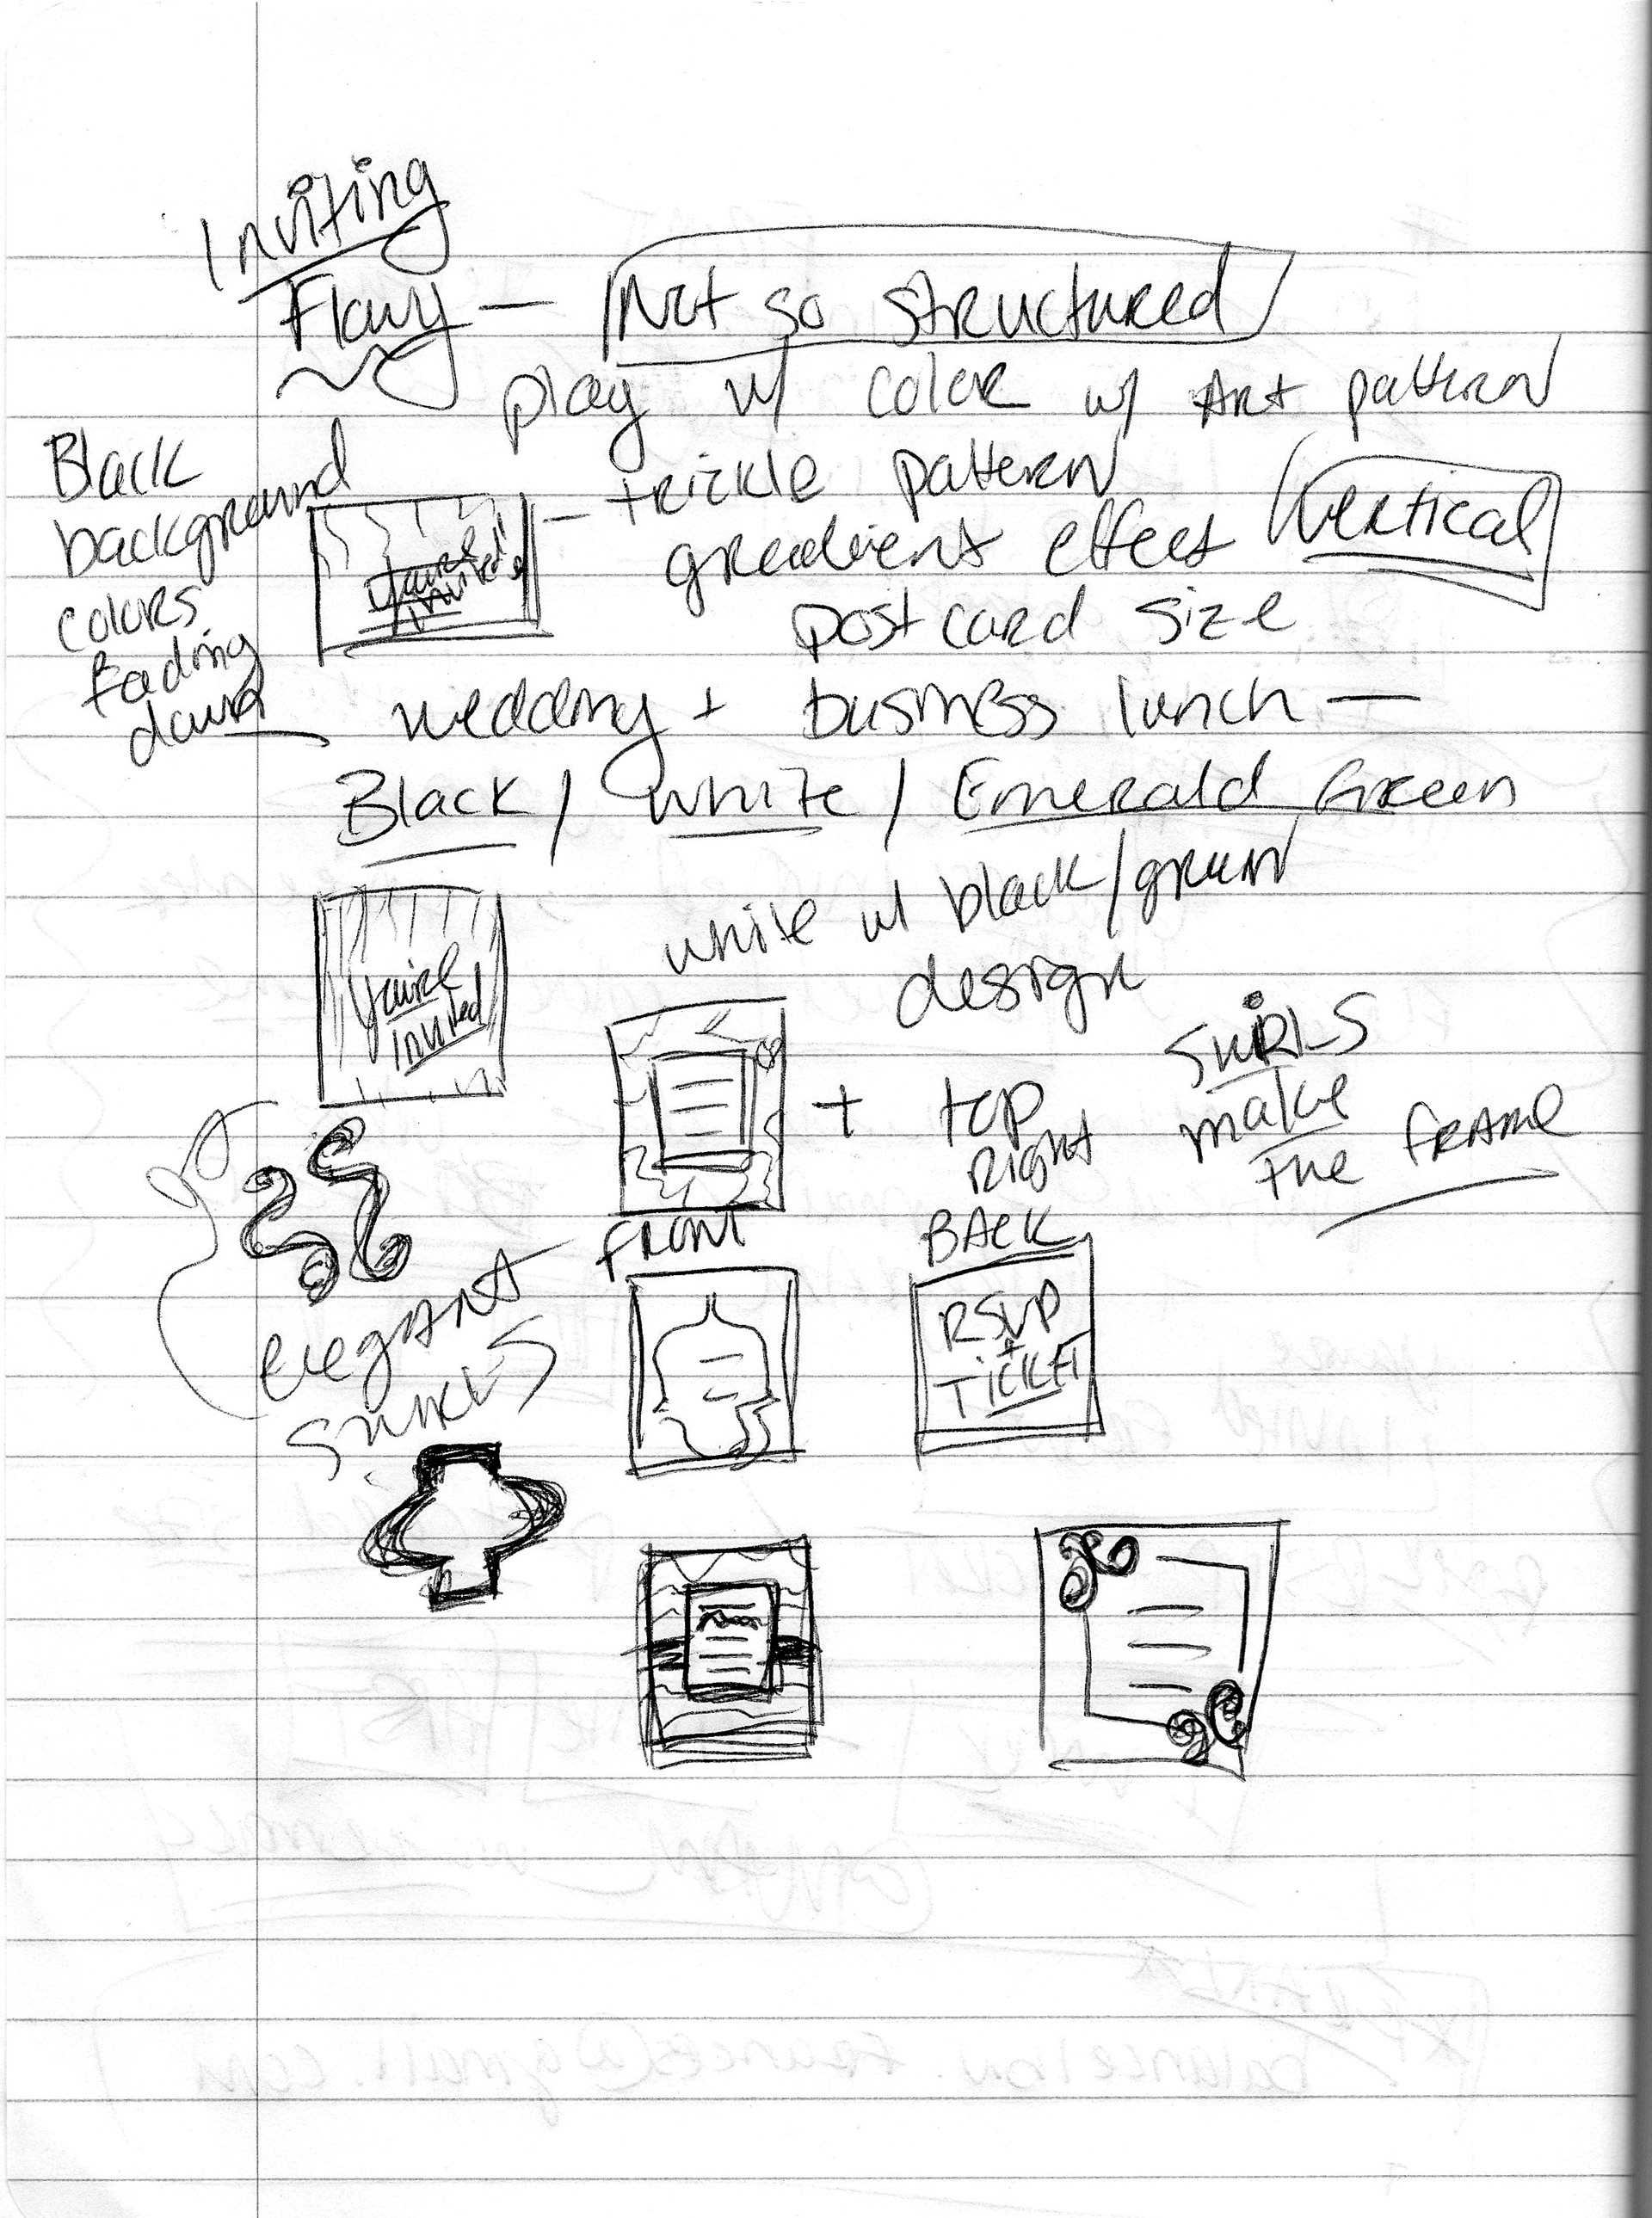 Inviting
Flowy — Not so structured
play w/ color w/ Art pattern
Black
background
colors
fading
down
— trickle pattern
gradient effect vertical
postcard size
You're
Invited
wedding + business lunch —
Black / white / Emerald Green
white w/ black/green
design
You're
Invited
+ top
Right
SWIRLS
make
the FRAME
elegant
SWIRLS
FRONT
BACK
RSVP
+
TICKET